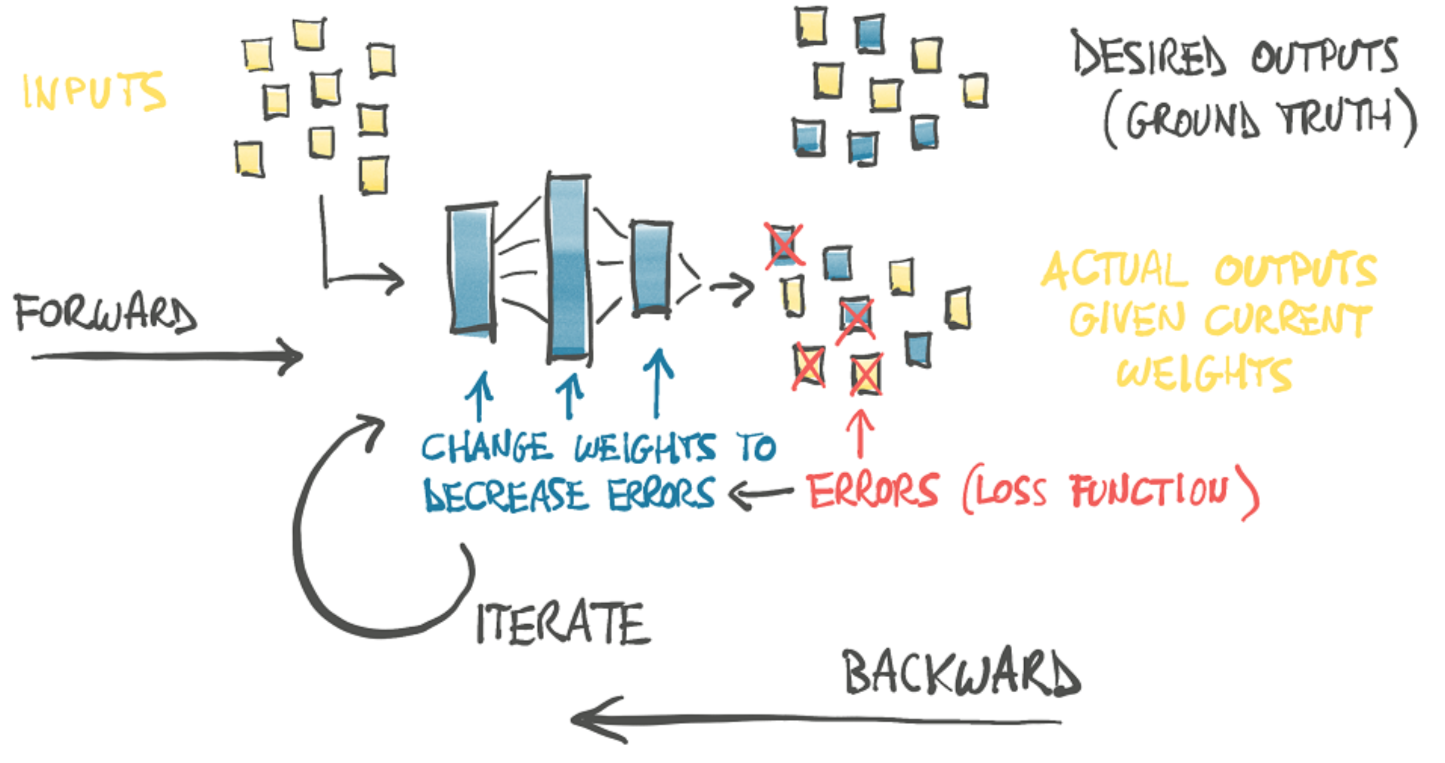 INPUTS
DESIRED OUTPUTS
(GROUND TRUTH)
FORWARD
ACTUAL OUTPUTS
GIVEN CURRENT
WEIGHTS
CHANGE WEIGHTS TO
DECREASE ERRORS
ERRORS (LOSS FUNCTION)
ITERATE
BACKWARD